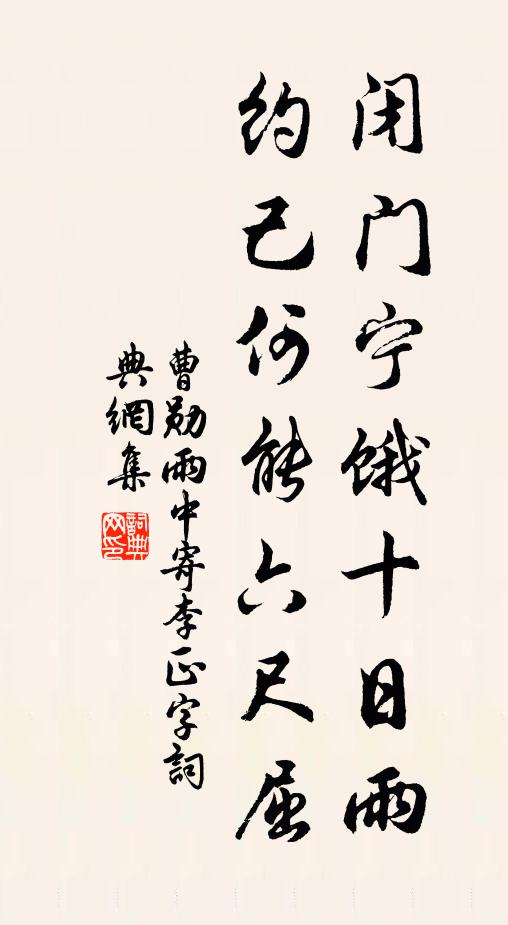 闭门宁饿十日雨
约己何能六尺屈
曹勋雨中寄李正字詞
典網集
詞典网印